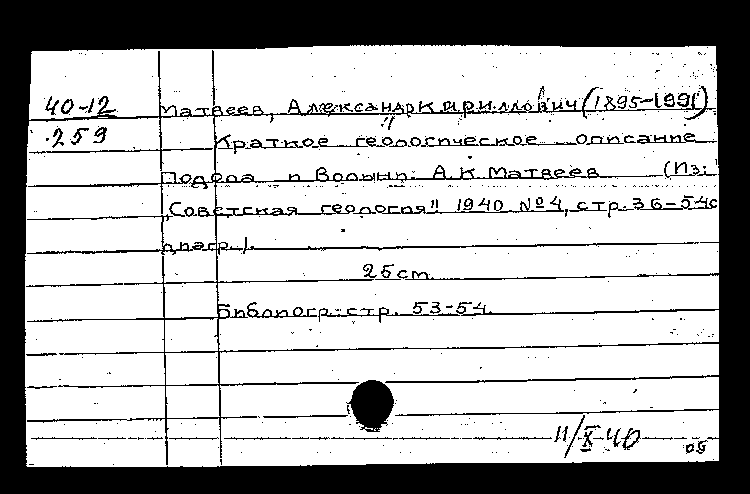 40-12 Матвеев, Александр Кириллович (1895-1991)
.259 Краткое геологическое описание
Подола и Волыни. А.К Матвеев (Из:
„Советская геология" 1940 №4, стр. 36-54с
диагр.).
25 cm.
Библиогр: стр. 53-54.
11/X 40
05